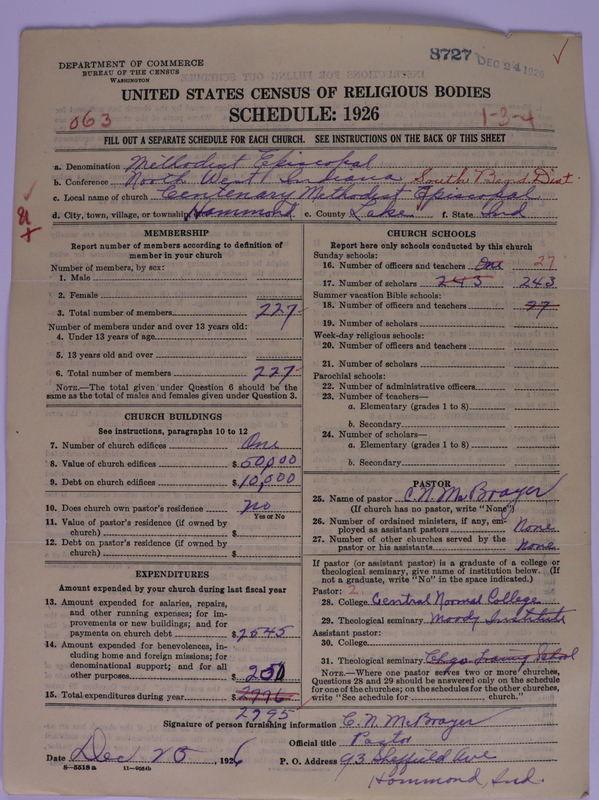 8727 DEC 24 1926
DEPARTMENT OF COMMERCE
BUREAU OF THE CENSUS
WASHINGTON
UNITED STATES CENSUS OF RELIGIOUS BODIES
063 SCHEDULE: 1926 1-3-4
FILL OUT A SEPARATE SCHEDULE FOR EACH CHURCH. SEE INSTRUCTIONS ON THE BACK OF THIS SHEET
a. Denomination Methodist Episcopal
b. Conference North West Indiana South Bend Dist.
c. Local name of church Centenary Methodist Episcopal
d. City, town, village, or township Hammond e. County Lake f. State Ind
MEMBERSHIP
Report number of members according to definition of
member in your church
Number of members, by sex:
1. Male
2. Female
3. Total number of members 227
Number of members under and over 13 years old:
4. Under 13 years of age
5. 13 years old and over
6. Total number of members 227
NOTE.—The total given under Question 6 should be the
same as the total of males and females given under Question 3.
CHURCH BUILDINGS
See instructions, paragraphs 10 to 12
7. Number of church edifices One
8. Value of church edifices $50,000
9. Debt on church edifices $10,000
10. Does church own pastor's residence? no
Yes or No
11. Value of pastor's residence (if owned by
church) $
12. Debt on pastor's residence (if owned by
church) $
EXPENDITURES
Amount expended by your church during last fiscal year
13. Amount expended for salaries, repairs,
and other running expenses; for im-
provements or new buildings; and for
payments on church debt $2545
14. Amount expended for benevolences, in-
cluding home and foreign missions; for
denominational support; and for all
other purposes $250
15. Total expenditures during year $2796
2795
CHURCH SCHOOLS
Report here only schools conducted by this church
Sunday schools:
16. Number of officers and teachers One 27
17. Number of scholars 243 243
Summer vacation Bible schools:
18. Number of officers and teachers 27
19. Number of scholars
Week-day religious schools:
20. Number of officers and teachers
21. Number of scholars
Parochial schools:
22. Number of administrative officers
23. Number of teachers—
a. Elementary (grades 1 to 8)
b. Secondary
24. Number of scholars—
a. Elementary (grades 1 to 8)
b. Secondary
PASTOR
25. Name of pastor C. N. McBrayer
(If church has no pastor, write "None")
26. Number of ordained ministers, if any, em-
ployed as assistant pastors None
27. Number of other churches served by the
pastor or his assistants None
If pastor (or assistant pastor) is a graduate of a college or
theological seminary, give name of institution below. (If
not a graduate, write "No" in the space indicated.)
Pastor: 2
28. College Central Normal College
29. Theological seminary Moody Institute
Assistant pastor:
30. College
31. Theological seminary Chgo Training School
NOTE.—Where one pastor serves two or more churches,
Questions 28 and 29 should be answered only on the schedule
for one of the churches; on the schedules for the other churches,
write "See schedule for church."
Signature of person furnishing information C. N. McBrayer
Official title Pastor
Date Dec 20, 1926 P. O. Address 93 Sheffield Ave
8—5518a 11—9034b Hammond, Ind.